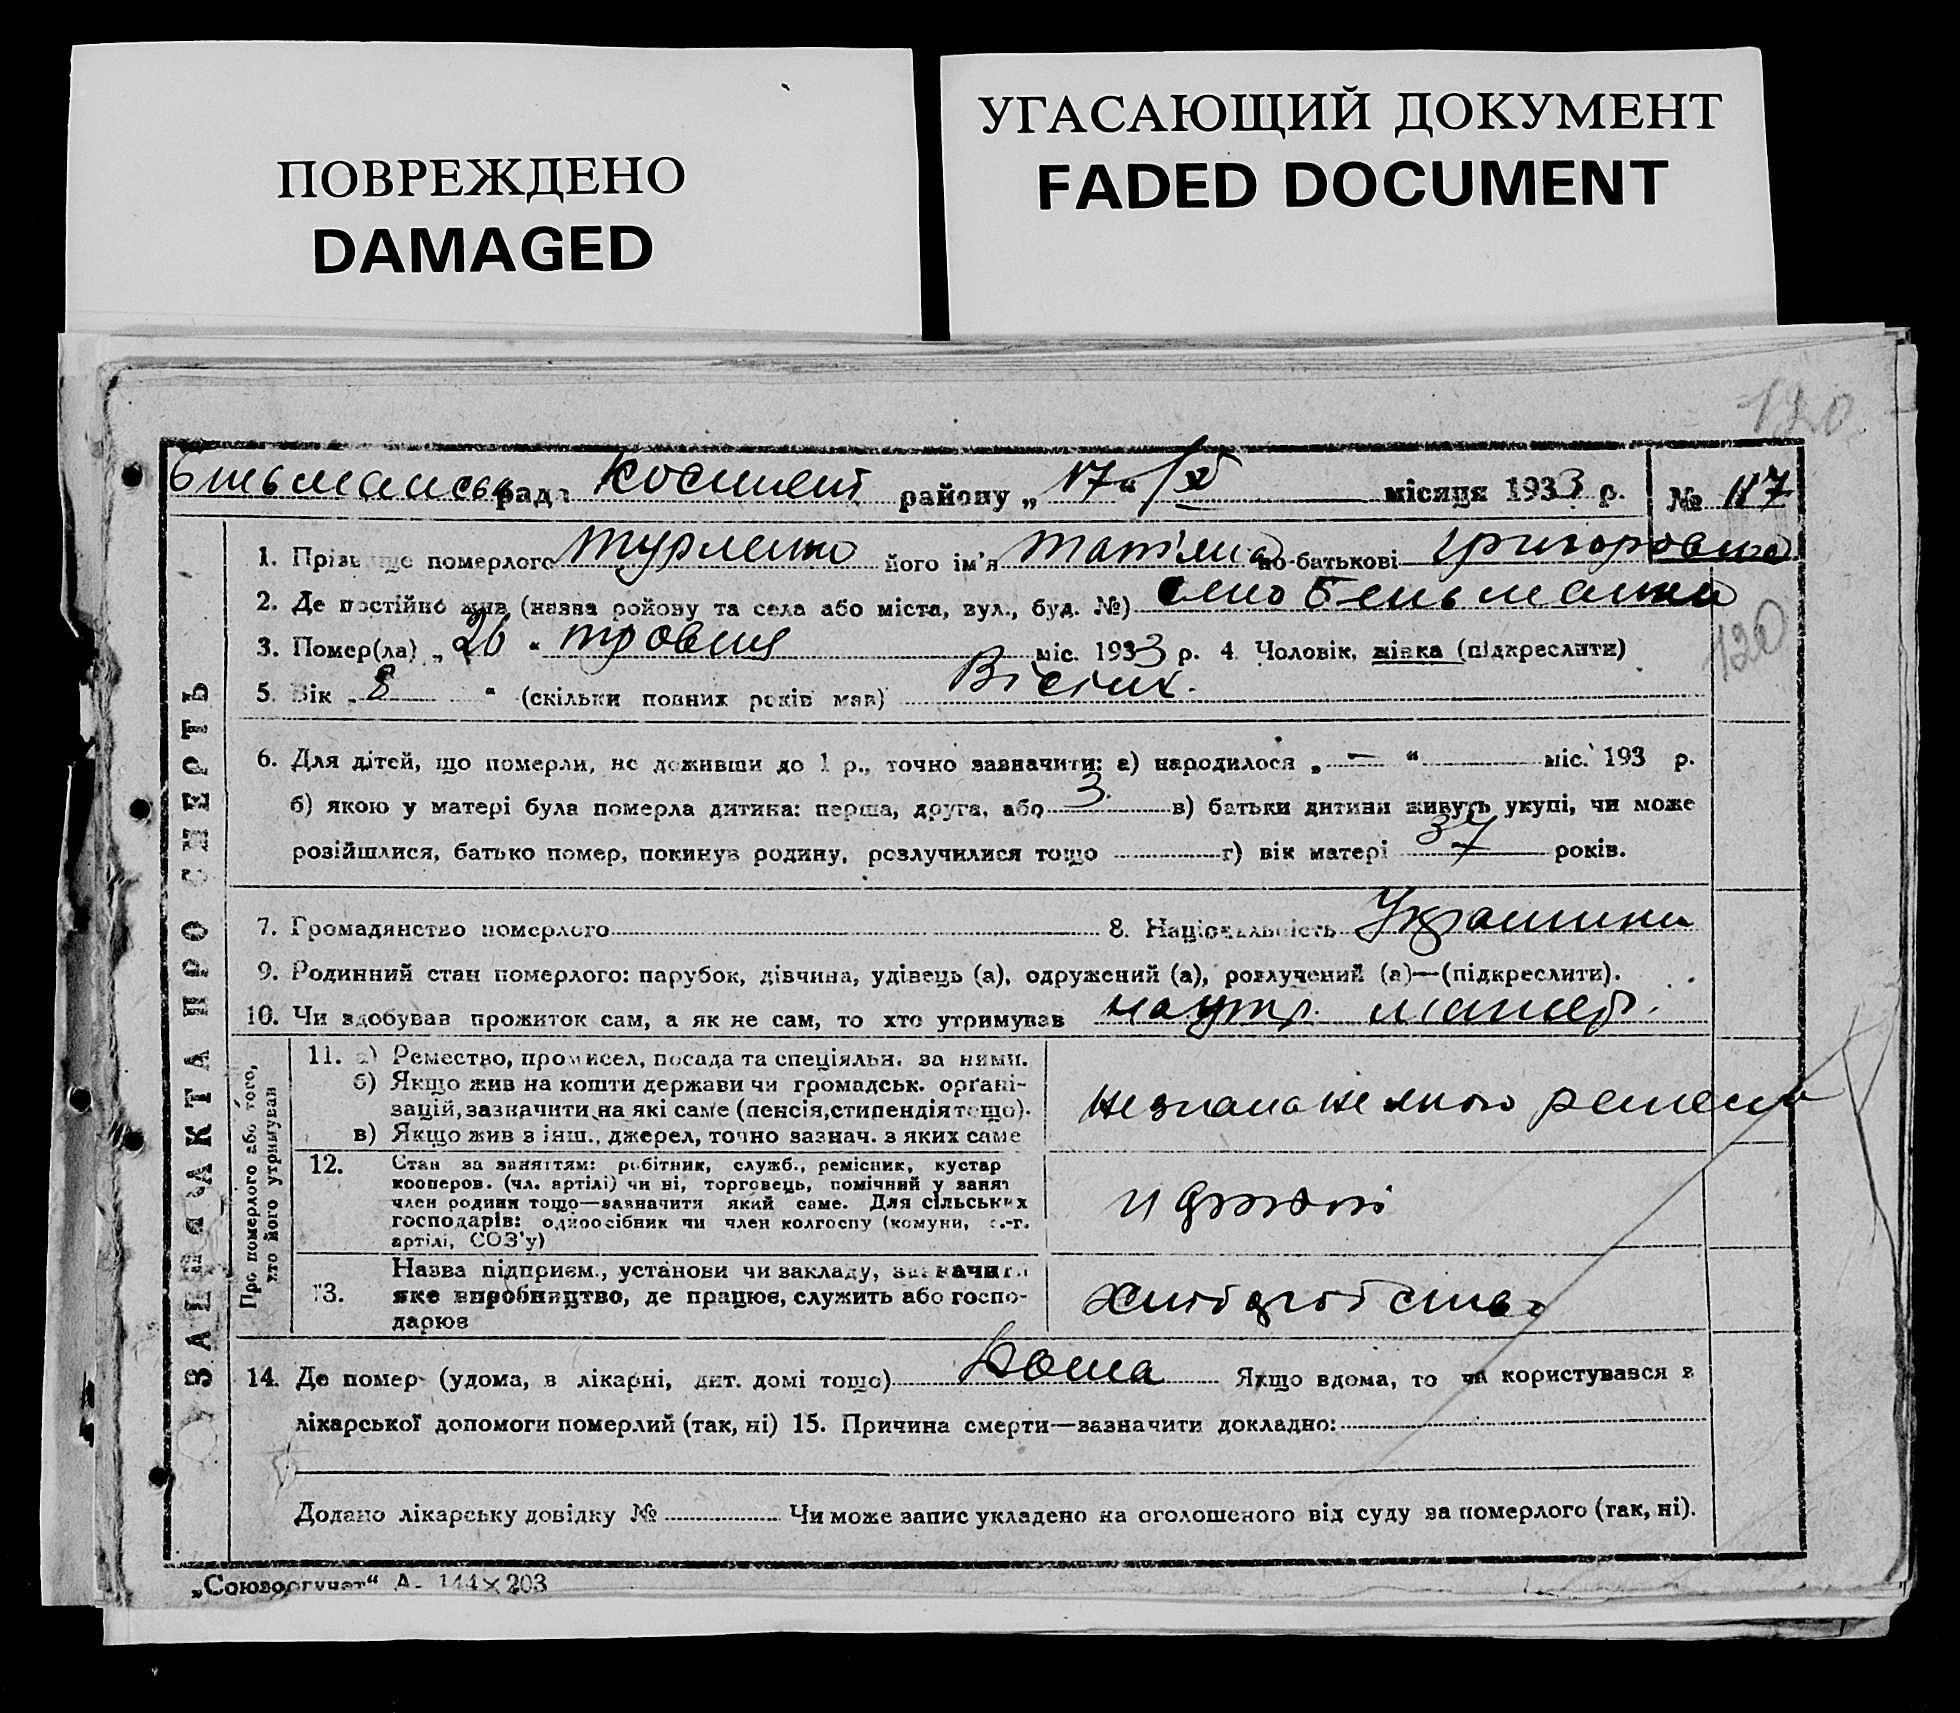 ПОВРЕЖДЕНО
DAMAGED
УГАСАЮЩИЙ ДОКУМЕНТ
FADED DOCUMENT
120
рада району „17“ місяця 1933 р. № 117
1. Прізвище померлого його ім'я по-батькові Григоровна
2. Де постійно жив (назва району та села або міста, вул., буд. №) село Бельманка
3. Помер(ла) „26“ травня міс. 1933 р. 4 Чоловік, жінка (підкреслити)
120
5. Вік „8“ (скільки повних років мав) Вісім.
6. Для дітей, що померли, не доживши до 1 р., точно зазначити: а) народилося „—“ міс. 193 р.
б) якою у матері була померла дитина: перша, друга, або 3. в) батьки дитини живуть укупі, чи може
розійшлися, батько помер, покинув родину, розлучилися тощо г) вік матері 37 років.
7. Громадянство померлого 8. Національність
9. Родинний стан померлого: парубок, дівчина, удівець (а), одружений (а), розлучений (а)—(підкреслити).
10. Чи здобував прожиток сам, а як не сам, то хто утримував
Про померлого або того, хто його утримував
11. а) Ремество, промисел, посада та спеціяльн. за ними.
б) Якщо жив на кошти держави чи громадськ. орґані-
зацій, зазначити на які саме (пенсія, стипендія тощо).
в) Якщо жив з інш., джерел, точно зазнач. з яких саме
12. Стан за заняттям: робітник, служб., ремісник, кустар
кооперов. (чл. артілі) чи ні, торговець, помічний у занят
член родини тощо—зазначити який саме. Для сільських
господарів: одноосібник чи член колгоспу (комуни, с.-г.
артілі, СОЗ'у)
13. Назва підприєм., установи чи закладу, зазначити
яке виробництво, де працює, служить або госпо-
дарює
14. Де помер (удома, в лікарні, дит. домі тощо) дома Якщо вдома, то чи користувався з
лікарської допомоги померлий (так, ні) 15. Причина смерти—зазначити докладно:
Додано лікарську довідку № Чи може запис укладено на оголошеного від суду за померлого (так, ні).
АКТА ПРО СМЕРТЬ
„Союзоргучет“ А- 144×203